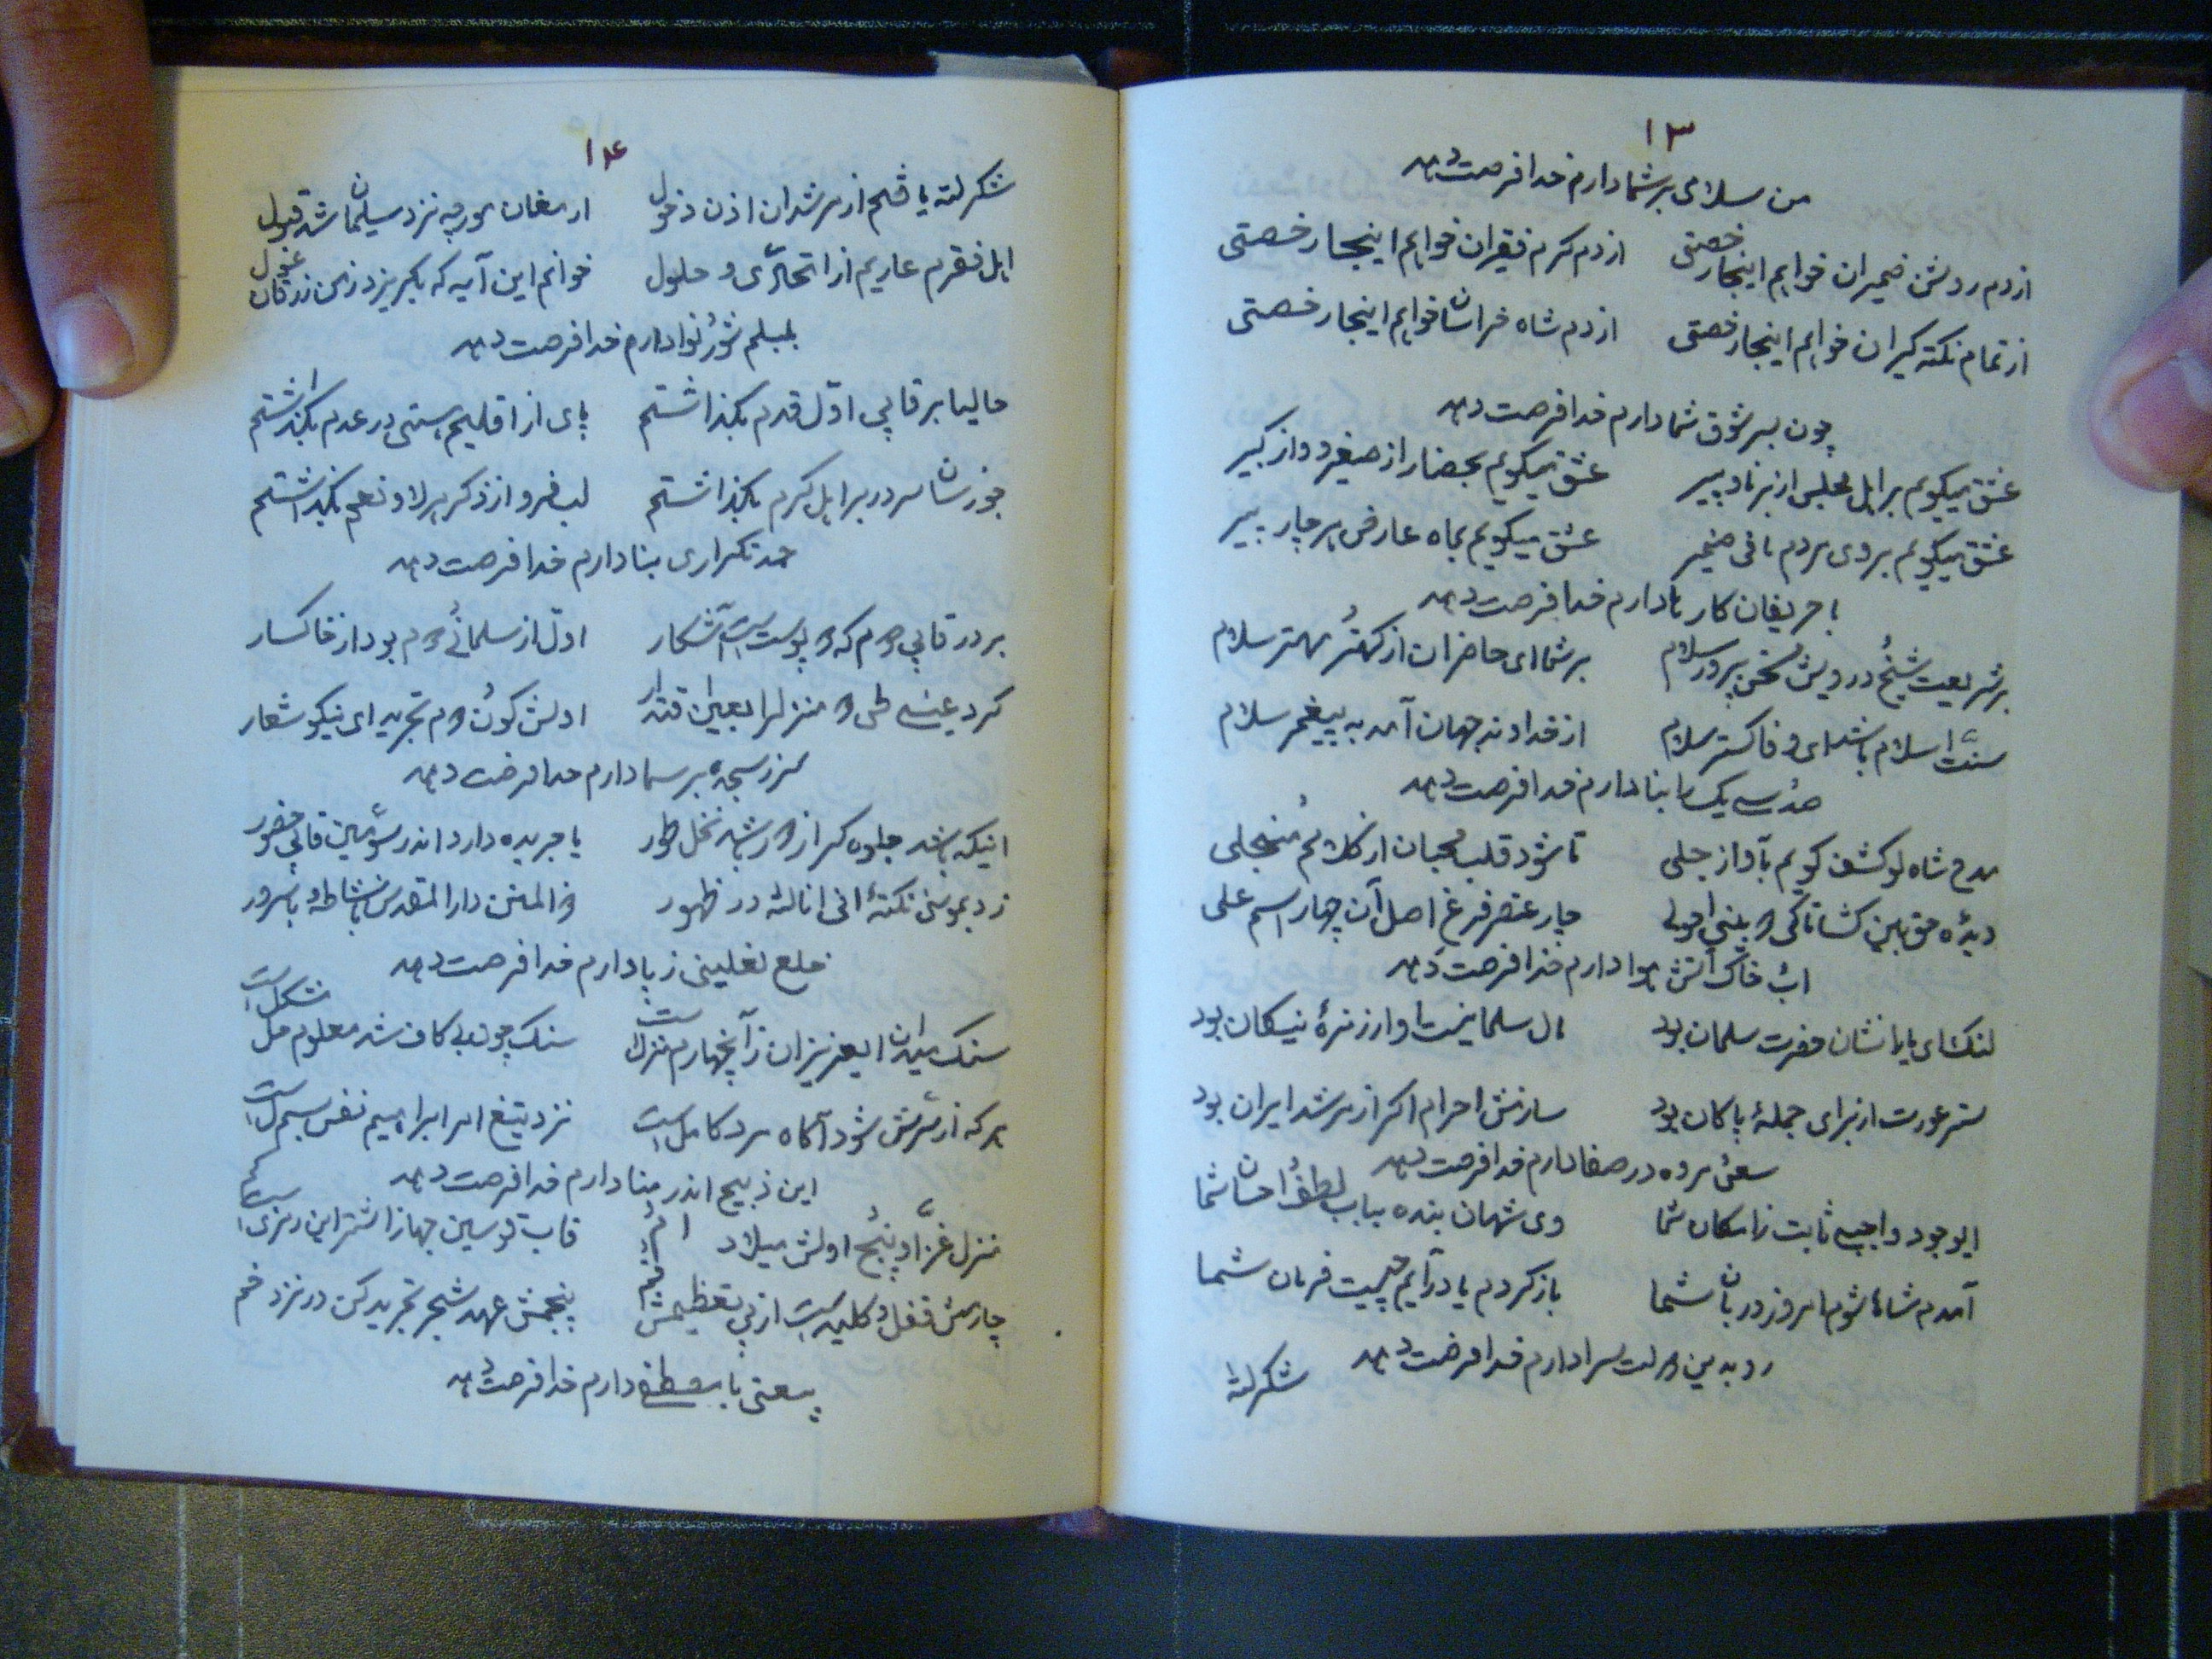 ۱۳
من سلامی بر شما دارم خدا فرصت دهد
از دم روشن ضمیران خواهم اینجا رخصتی از دم گرم فقیران خواهم اینجا رخصتی
از تمام نکته گیران خواهم اینجا رخصتی از دم شاه خراسان خواهم اینجا رخصتی
چون بسر شوق شما دارم خدا فرصت دهد
عشق میگویم بر اهل مجلس از برنا و پیر عشق میگویم بحضار از صغیر و از کبیر
عشق میگویم بروی مردم صافی ضمیر عشق میگویم بماه عارض هر چار پیر
با حریفان کارها دارم خدا فرصت دهد
بر شریعت شیخ و درویش سخن پرور سلام بر شما ای حاضران از کهتر و مهتر سلام
سنت اسلام باشد ای و خاکستر سلام از خداوند جهان آمد به پیغمبر سلام
یک بنا دارم خدا فرصت دهد
مدح شاه لو کشف گویم بآواز جلی تا شود قلب محبان از کلامم منجلی
دیدهٔ حق بین گشا تا کی و بینی احولی چار عنصر فرع اصل آن چهار اسم علی
آب خاک آتش هوا دارم خدا فرصت دهد
لنگ ای یاران نشان حضرت سلمان بود مال سلمانیست او از زمرهٔ نیکان بود
ستر عورت از برای جملهٔ پاکان بود سازمش احرام اگر از مرشد ایران بود
سعی مروه در صفا دارم خدا فرصت دهد
ایوجود واجبی ثابت ز امکان شما وی شهان بنده بباب لطف و احسان شما
آمدم شاها شوم امروز دربان شما باز گردم یا در آیم چیست فرمان شما
رو به این دولت سرا دارم خدا فرصت دهد
شکر لله
۱۴
شکر لله یافتم از مرشدان اذن دخول ارمغان مورچه نزد سلیمان شد قبول
اهل فقرم عاریم از اتحادی و حلول خوانم این آیه که بگریزد ز من زندگان غول
بلبلم شور و نوا دارم خدا فرصت دهد
حالیا بر قاپی اول قدم بگذاشتم پای از اقلیم هستی در عدم بگذاشتم
سر در بر اهل کرم بگذاشتم لب فرو از ذکر هر لا و نعم بگذاشتم
حمد تکراری بنا دارم خدا فرصت دهد
بر در قاپی دوم که و پوست است آشکار اول از سلمان دوم بود از خاکسار
کرد عیسی طی و منزل را بعین اقتدار اولش کون دوم تجرید ای نیکو شعار
سجده بر سما دارم خدا فرصت دهد
اینکه باشد جلوه گر از و رشته نخل طور یا جریده دارد اندر سومین قاپی حضور
زد بموسی نکتهٔ انی انا لله در ظهور دار المقدس با نشاط و با سرور
خلع نعلینی ز پا دارم خدا فرصت دهد
سنگ میدان ایعزیزان زآنچهارم منزل است سنگ چون بی کاف شد معلوم حل مشکل است
هر که از سرش شود آگاه مرد کامل است نزد تیغ امر ابراهیم نفس بسمل است
این ذبیح اندر منا دارم خدا فرصت دهد
منزل غرا و پنج اولش میلاد قاب قوسین جهاز اشتر این رمزی است
چارمش قفل و کلید است از پی تعظیمش پنجمش عهد شجر تجرید کن در نزد خم
بیعتی با مصطفی دارم خدا فرصت دهد